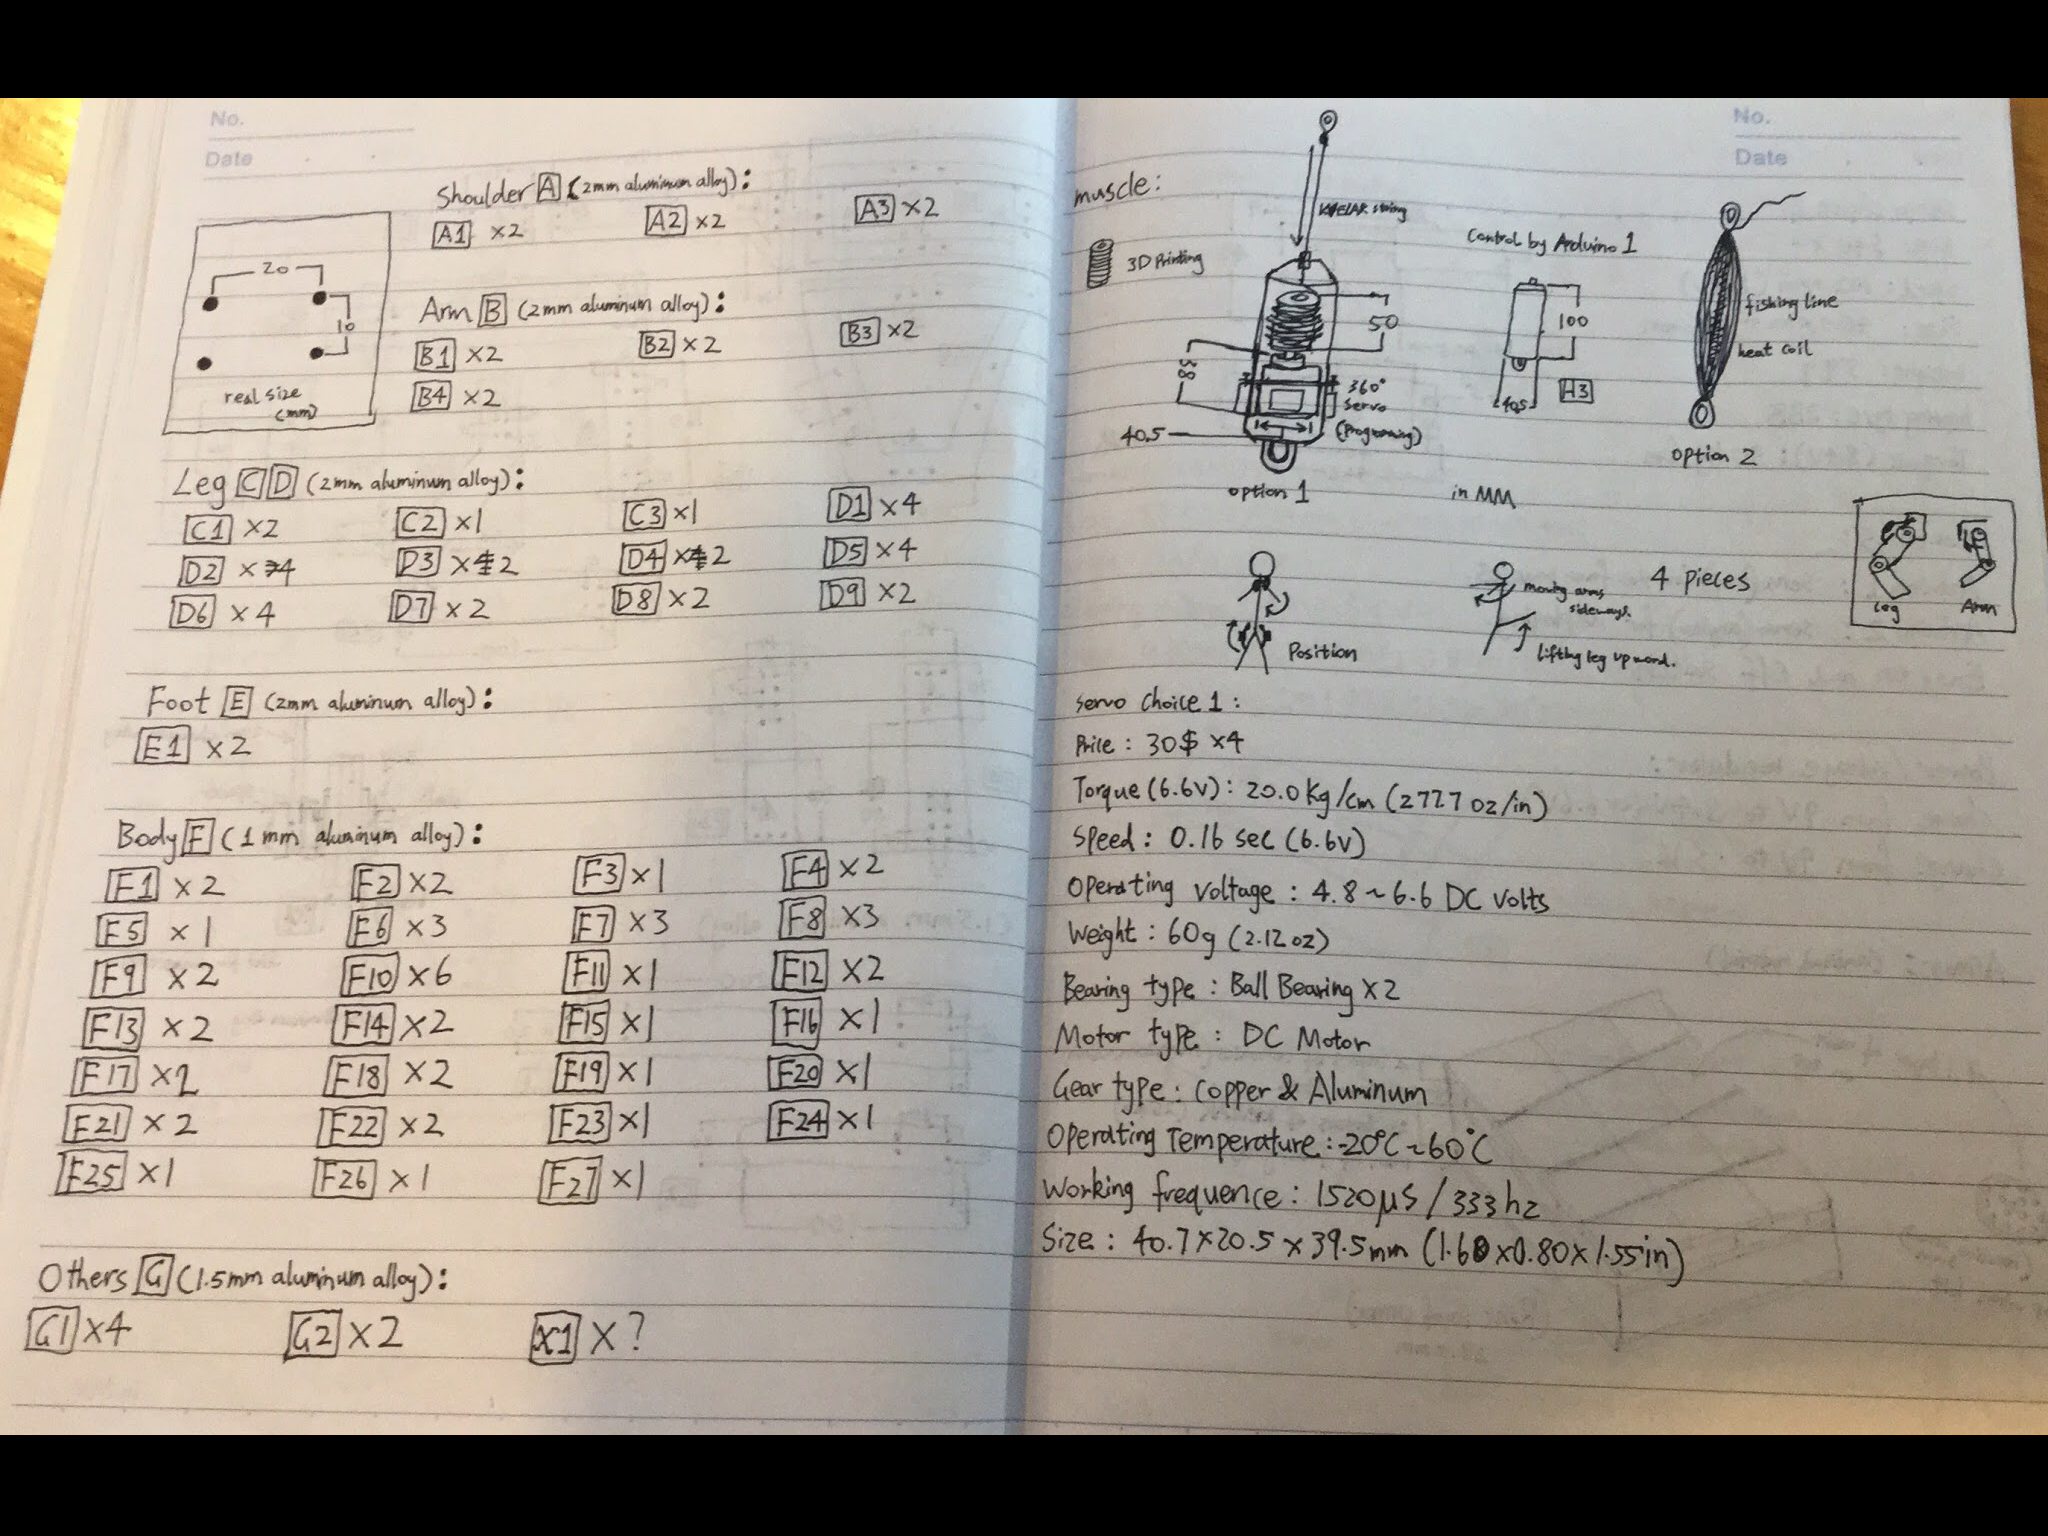 No.
Date
Shoulder A (2mm aluminum alloy):
A1 x2 A2 x2 A3 x2
20
10
real size
(mm)
Arm B (2mm aluminum alloy):
B1 x2 B2 x2 B3 x2
B4 x2
Leg C D (2mm aluminum alloy):
C1 x2 C2 x1 C3 x1 D1 x4
D2 x4 D3 x2 D4 x2 D5 x4
D6 x4 D7 x2 D8 x2 D9 x2
Foot E (2mm aluminum alloy):
E1 x2
Body F (1mm aluminum alloy):
F1 x2 F2 x2 F3 x1 F4 x2
F5 x1 F6 x3 F7 x3 F8 x3
F9 x2 F10 x6 F11 x1 F12 x2
F13 x2 F14 x2 F15 x1 F16 x1
F17 x2 F18 x2 F19 x1 F20 x1
F21 x2 F22 x2 F23 x1 F24 x1
F25 x1 F26 x1 F27 x1
Others G (1.5mm aluminum alloy):
G1 x4 G2 x2 X1 x ?
No.
Date
muscle:
3D Printing
string
50
38
360°
servo
(Programing)
40.5
option 1
Control by Arduino 1
100
40.5
H3
in MM
fishing line
heat coil
option 2
Position
moving arms
sideways.
lifting leg upward.
4 pieces
Leg Arm
Servo Choice 1:
Price: 30$ x4
Torque (6.6V): 20.0 Kg/cm (277.7 oz/in)
Speed: 0.16 sec (6.6V)
Operating voltage: 4.8~6.6 DC Volts
Weight: 60g (2.12 oz)
Bearing type: Ball Bearing x2
Motor type: DC Motor
Gear type: Copper & Aluminum
Operating Temperature: -20°C~60°C
Working frequence: 1520μs / 333hz
Size: 40.7x20.5x39.5mm (1.60x0.80x1.55in)